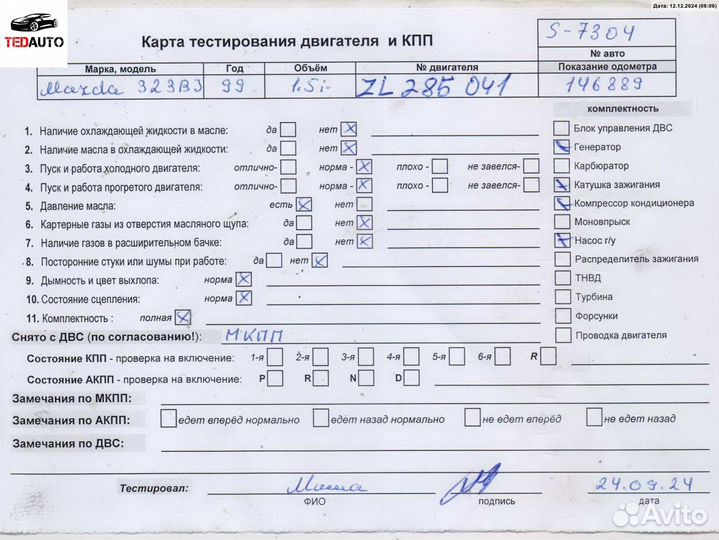 Дата: 12.12.2024 (08:06)
TEDAUTO
Карта тестирования двигателя и КПП
S-7304
№ авто
Марка, модель Год Объём № двигателя Показание одометра
Mazda 323BJ 99 1.5i ZL 285 041 146889
комплектность
1. Наличие охлаждающей жидкости в масле: да нет
2. Наличие масла в охлаждающей жидкости: да нет
3. Пуск и работа холодного двигателя: отлично- норма - плохо - не завелся-
4. Пуск и работа прогретого двигателя: отлично- норма - плохо - не завелся-
5. Давление масла: есть нет
6. Картерные газы из отверстия масляного щупа: да нет
7. Наличие газов в расширительном бачке: да нет
8. Посторонние стуки или шумы при работе: да нет
9. Дымность и цвет выхлопа: норма
10. Состояние сцепления: норма
11. Комплектность : полная
Блок управления ДВС
Генератор
Карбюратор
Катушка зажигания
Компрессор кондиционера
Моновпрыск
Насос г/у
Распределитель зажигания
ТНВД
Турбина
Форсунки
Проводка двигателя
Снято с ДВС (по согласованию!): МКПП
Состояние КПП - проверка на включение: 1-я 2-я 3-я 4-я 5-я 6-я R
Состояние АКПП - проверка на включение: P R N D
Замечания по МКПП:
Замечания по АКПП: едет вперёд нормально едет назад нормально не едет вперёд не едет назад
Замечания по ДВС:
Тестировал: 24.09.24
ФИО подпись дата
Avito